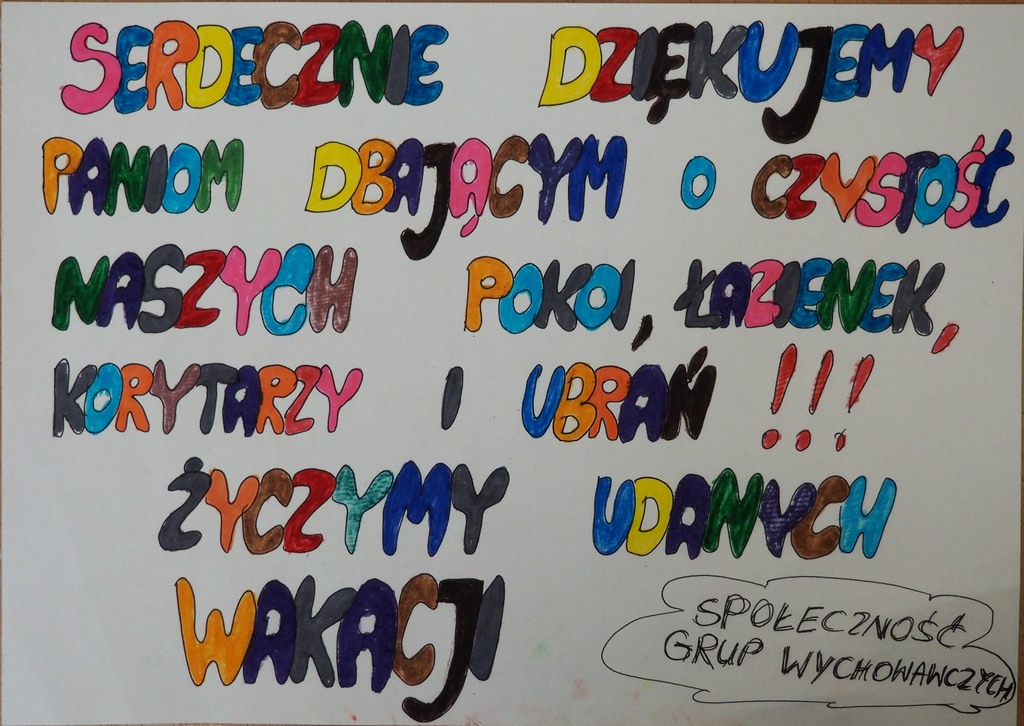 SERDECZNIE DZIĘKUJEMY
PANIOM DBAJĄCYM O CZYSTOŚĆ
NASZYCH POKOI, ŁAZIENEK,
KORYTARZY I UBRAŃ !!!
ŻYCZYMY UDANYCH
WAKACJI
SPOŁECZNOŚĆ
GRUP WYCHOWAWCZYCH